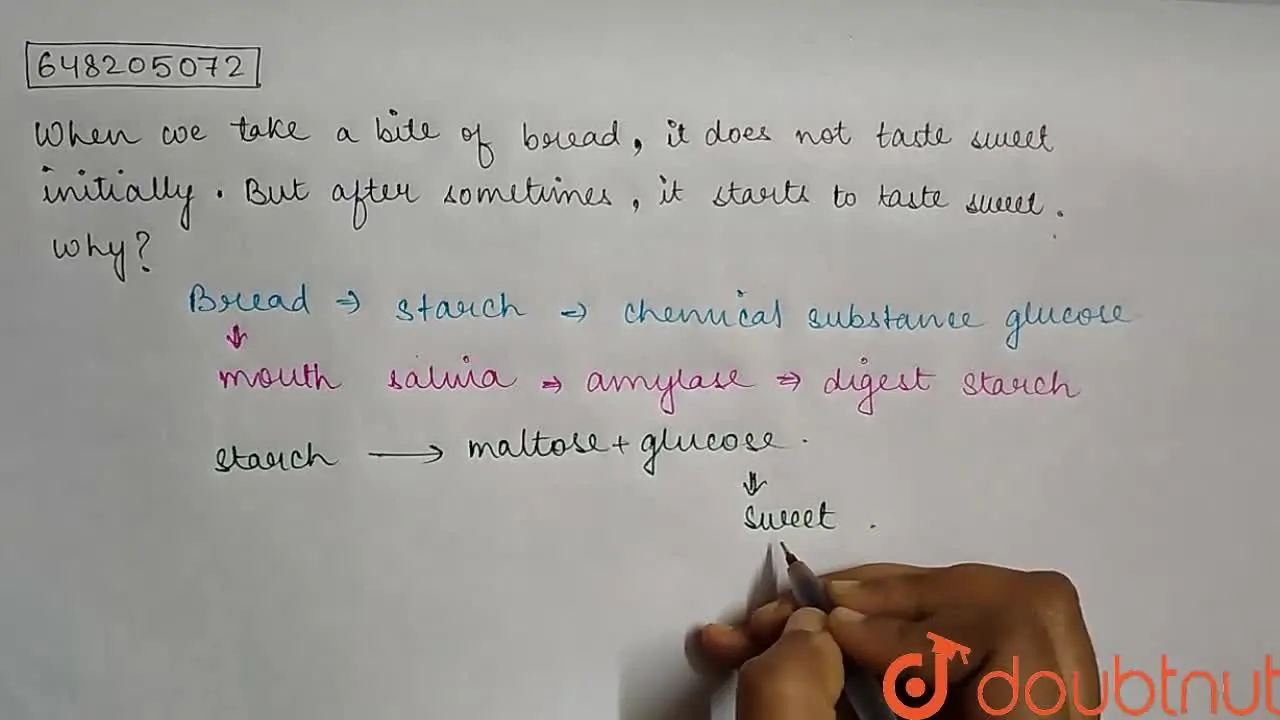 648205072
When we take a bite of bread, it does not taste sweet
initially. But after sometimes, it starts to taste sweet.
Why?
Bread ⇒ starch ⇒ chemical substance glucose
⇓
mouth saliva ⇒ amylase ⇒ digest starch
starch ⟶ maltose + glucose.
⇓
sweet.
doubtnut